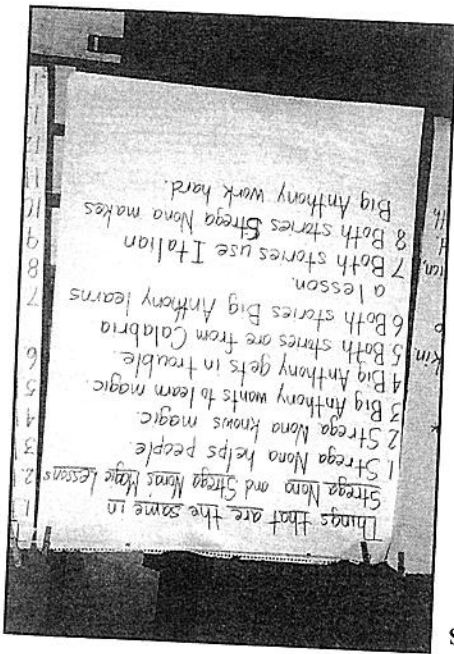 Things that are the same in
Strega Nona and Strega Nona's Magic Lessons
1 Strega Nona helps people.
2 Strega Nona knows magic.
3 Big Anthony wants to learn magic.
4 Big Anthony gets in trouble.
5. Both stories are from Calabria
6 Both stories Big Anthony learns
a lesson.
7 Both stories use Italian
8 Both stories Strega Nona makes
Big Anthony work hard.
1
2
3
4
5
6
7
8
9
10
11
12